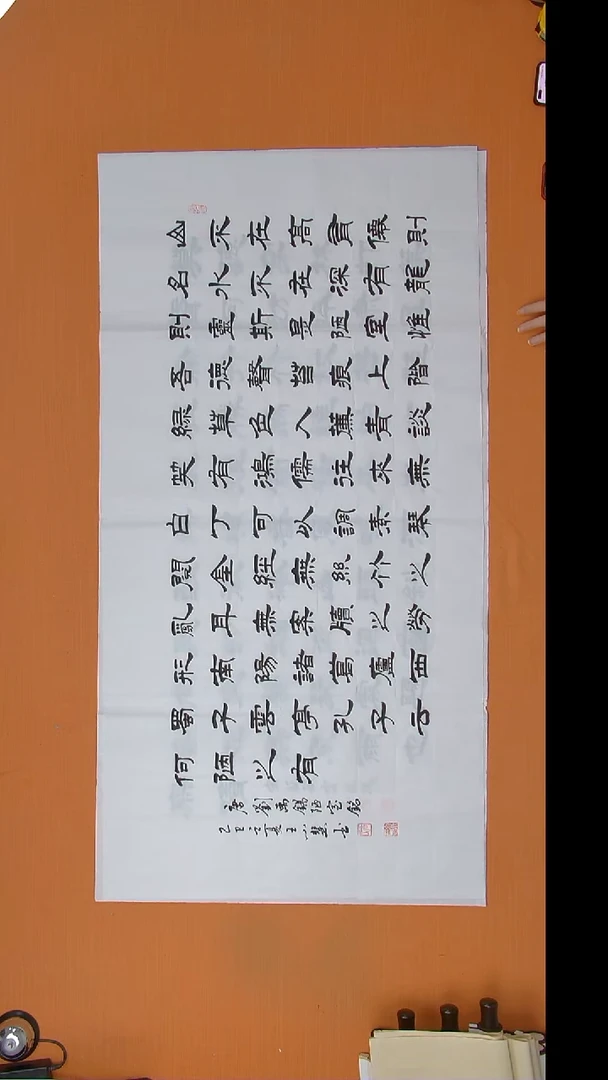 山不在高有僊則
名水不在深有龍
則靈斯是陋室惟
吾德馨苔痕上階
綠草色入簾青談
笑有鴻儒往來無
白丁可以調素琴
閱金經無絲竹之
亂耳無案牘之勞
形南陽諸葛廬西
蜀子雲亭孔子云
何陋之有
唐劉禹錫陋室銘
乙巳之夏王小慧书